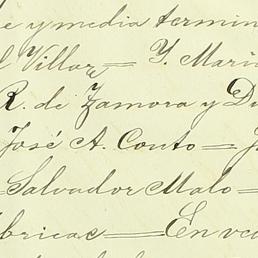 e y media termin
l Villar = Y. Mari
R. de Zamora y D
José A. Couto = J
= Salvador Malo =
bricac = En ve